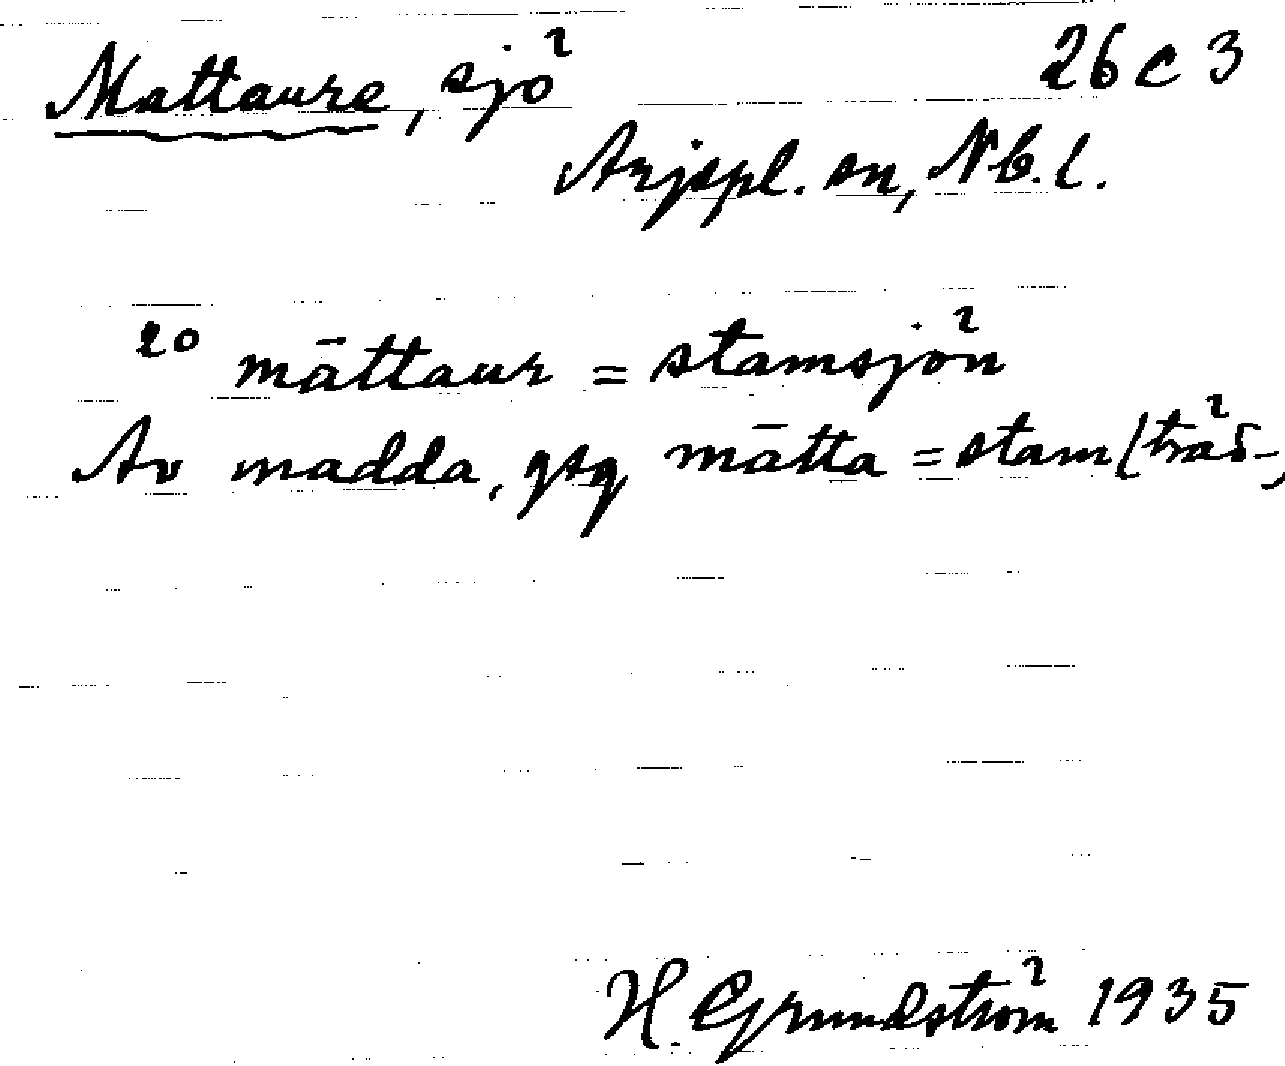 Mattaure, sjö 26 c 3
Arjepl. sn, Nb. l.
20 māttaur = stamsjön
Av madda, gsg mātta = stam (träd-)
H. Grundström 1935